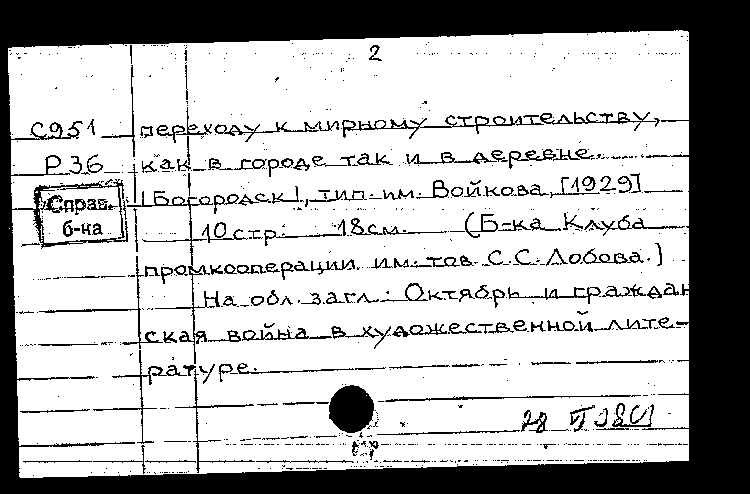 2
С951 переходу к мирному строительству,
Р36 как в городе так и в деревне.
Справ. |Богородск|, тип. им. Войкова, [1929]
б-на 10 стр. 18 см. (Б-ка Клуба
промкооперации им. тов. С.С. Лобова.)
На обл. загл.: Октябрь и граждан
ская война в художественной лите-
ратуре.
28